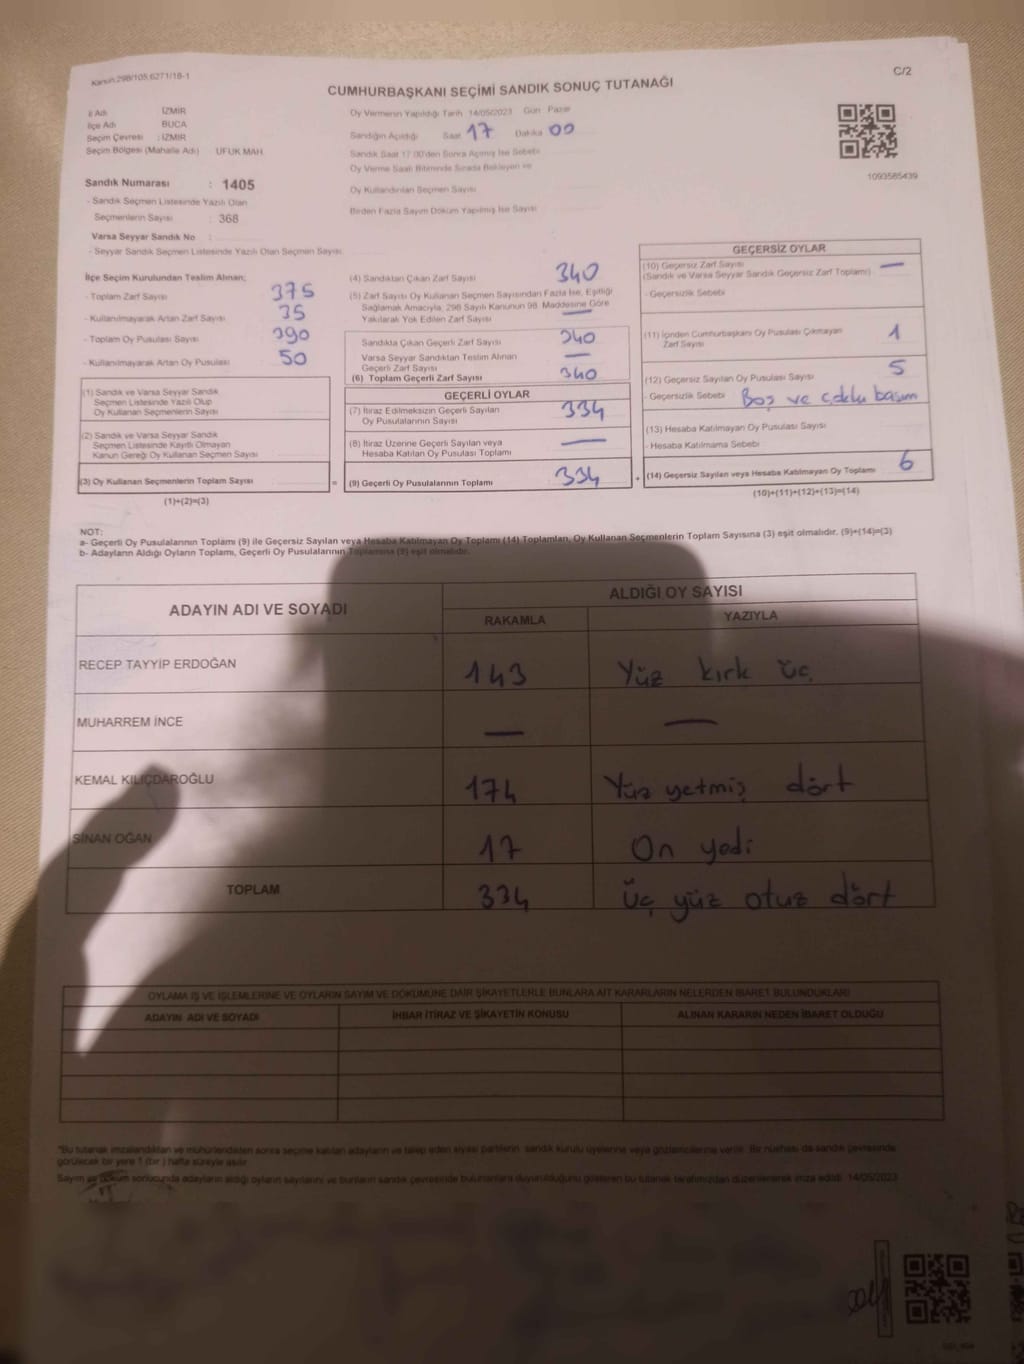 Kanun:298/105,6271/18-1
C/2
CUMHURBAŞKANI SEÇİMİ SANDIK SONUÇ TUTANAĞI
İl Adı İZMİR
İlçe Adı BUCA
Seçim Çevresi : İZMİR
Seçim Bölgesi (Mahalle Adı) UFUK MAH.
Sandık Numarası : 1405
- Sandık Seçmen Listesinde Yazılı Olan
Seçmenlerin Sayısı : 368
Varsa Seyyar Sandık No :
- Seyyar Sandık Seçmen Listesinde Yazılı Olan Seçmen Sayısı
Oy Vermenin Yapıldığı Tarih 14/05/2023 Gün Pazar
Sandığın Açıldığı Saat 17 Dakika 00
Sandık Saat 17.00'den Sonra Açılmış İse Sebebi
Oy Verme Saati Bitiminde Sırada Bekleyen ve
Oy Kullandırılan Seçmen Sayısı
Birden Fazla Sayım Döküm Yapılmış İse Sayısı
1093585439
İlçe Seçim Kurulundan Teslim Alınan;
- Toplam Zarf Sayısı 375
- Kullanılmayarak Artan Zarf Sayısı 35
- Toplam Oy Pusulası Sayısı 390
- Kullanılmayarak Artan Oy Pusulası 50
(1) Sandık ve Varsa Seyyar Sandık
Seçmen Listesinde Yazılı Olup
Oy Kullanan Seçmenlerin Sayısı
(2) Sandık ve Varsa Seyyar Sandık
Seçmen Listesinde Kayıtlı Olmayan
Kanun Gereği Oy Kullanan Seçmen Sayısı
(3) Oy Kullanan Seçmenlerin Toplam Sayısı =
(1)+(2)=(3)
(4) Sandıktan Çıkan Zarf Sayısı 340
(5) Zarf Sayısı Oy Kullanan Seçmen Sayısından Fazla İse, Eşitliği
Sağlamak Amacıyla, 298 Sayılı Kanunun 98. Maddesine Göre
Yakılarak Yok Edilen Zarf Sayısı —
Sandıkta Çıkan Geçerli Zarf Sayısı 340
Varsa Seyyar Sandıktan Teslim Alınan
Geçerli Zarf Sayısı —
(6) Toplam Geçerli Zarf Sayısı 340
GEÇERLİ OYLAR
(7) İtiraz Edilmeksizin Geçerli Sayılan
Oy Pusulalarının Sayısı 334
(8) İtiraz Üzerine Geçerli Sayılan veya
Hesaba Katılan Oy Pusulası Toplamı —
(9) Geçerli Oy Pusulalarının Toplamı 334 +
GEÇERSİZ OYLAR
(10) Geçersiz Zarf Sayısı —
(Sandık ve Varsa Seyyar Sandık Geçersiz Zarf Toplamı)
- Geçersizlik Sebebi
(11) İçinden Cumhurbaşkanı Oy Pusulası Çıkmayan
Zarf Sayısı 1
(12) Geçersiz Sayılan Oy Pusulası Sayısı 5
- Geçersizlik Sebebi Boş ve çoklu basım
(13) Hesaba Katılmayan Oy Pusulası Sayısı
- Hesaba Katılmama Sebebi
(14) Geçersiz Sayılan veya Hesaba Katılmayan Oy Toplamı 6
(10)+(11)+(12)+(13)=(14)
NOT:
a- Geçerli Oy Pusulalarının Toplamı (9) ile Geçersiz Sayılan veya Hesaba Katılmayan Oy Toplamı (14) Toplamları, Oy Kullanan Seçmenlerin Toplam Sayısına (3) eşit olmalıdır. (9)+(14)=(3)
b- Adayların Aldığı Oyların Toplamı, Geçerli Oy Pusulalarının Toplamına (9) eşit olmalıdır.
ADAYIN ADI VE SOYADI
ALDIĞI OY SAYISI
RAKAMLA YAZIYLA
RECEP TAYYİP ERDOĞAN 143 Yüz kırk üç
MUHARREM İNCE — —
KEMAL KILIÇDAROĞLU 174 Yüz yetmiş dört
SİNAN OĞAN 17 On yedi
TOPLAM 334 Üç yüz otuz dört
OYLAMA İŞ VE İŞLEMLERİNE VE OYLARIN SAYIM VE DÖKÜMÜNE DAİR ŞİKAYETLERLE BUNLARA AİT KARARLARIN NELERDEN İBARET BULUNDUKLARI
ADAYIN ADI VE SOYADI İHBAR İTİRAZ VE ŞİKAYETİN KONUSU ALINAN KARARIN NEDEN İBARET OLDUĞU
*Bu tutanak imzalandıktan ve mühürlendikten sonra seçime katılan adayların ve talep eden siyasi partilerin sandık kurulu üyelerine veya gözlemcilerine verilir. Bir nüshası da sandık çevresinde
görülecek bir yere 1 (bir) hafta süreyle asılır.
Sayım ve döküm sonucunda adayların aldığı oyların sayılarını ve bunların sandık çevresinde bulunanlara duyurulduğunu gösteren bu tutanak tarafımızdan düzenlenerek imza edildi. 14/05/2023